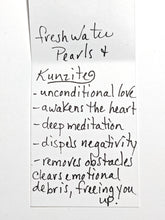 freshwater
Pearls &
Kunzites
- unconditional love
- awakens the heart
- deep meditation
- dispels negativity
- removes obstacles
clears emotional
debris, freeing you
up.